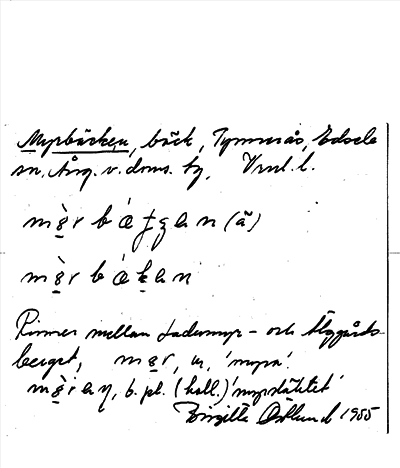 Myrbäcken, bäck, Tymmerås, Edsele
sn, Ång. v. doms. tg, Vml. l.
mè̱r b áʒ̱an (ã)
mè̱r b áḵan
Rinner mellan Lademyr- och Älggårds-
berget, me̱r, m, 'myra'.
mè̱raŋ, b. pl. (koll.) 'myrslåttet'
Birgitta Östlund 1955